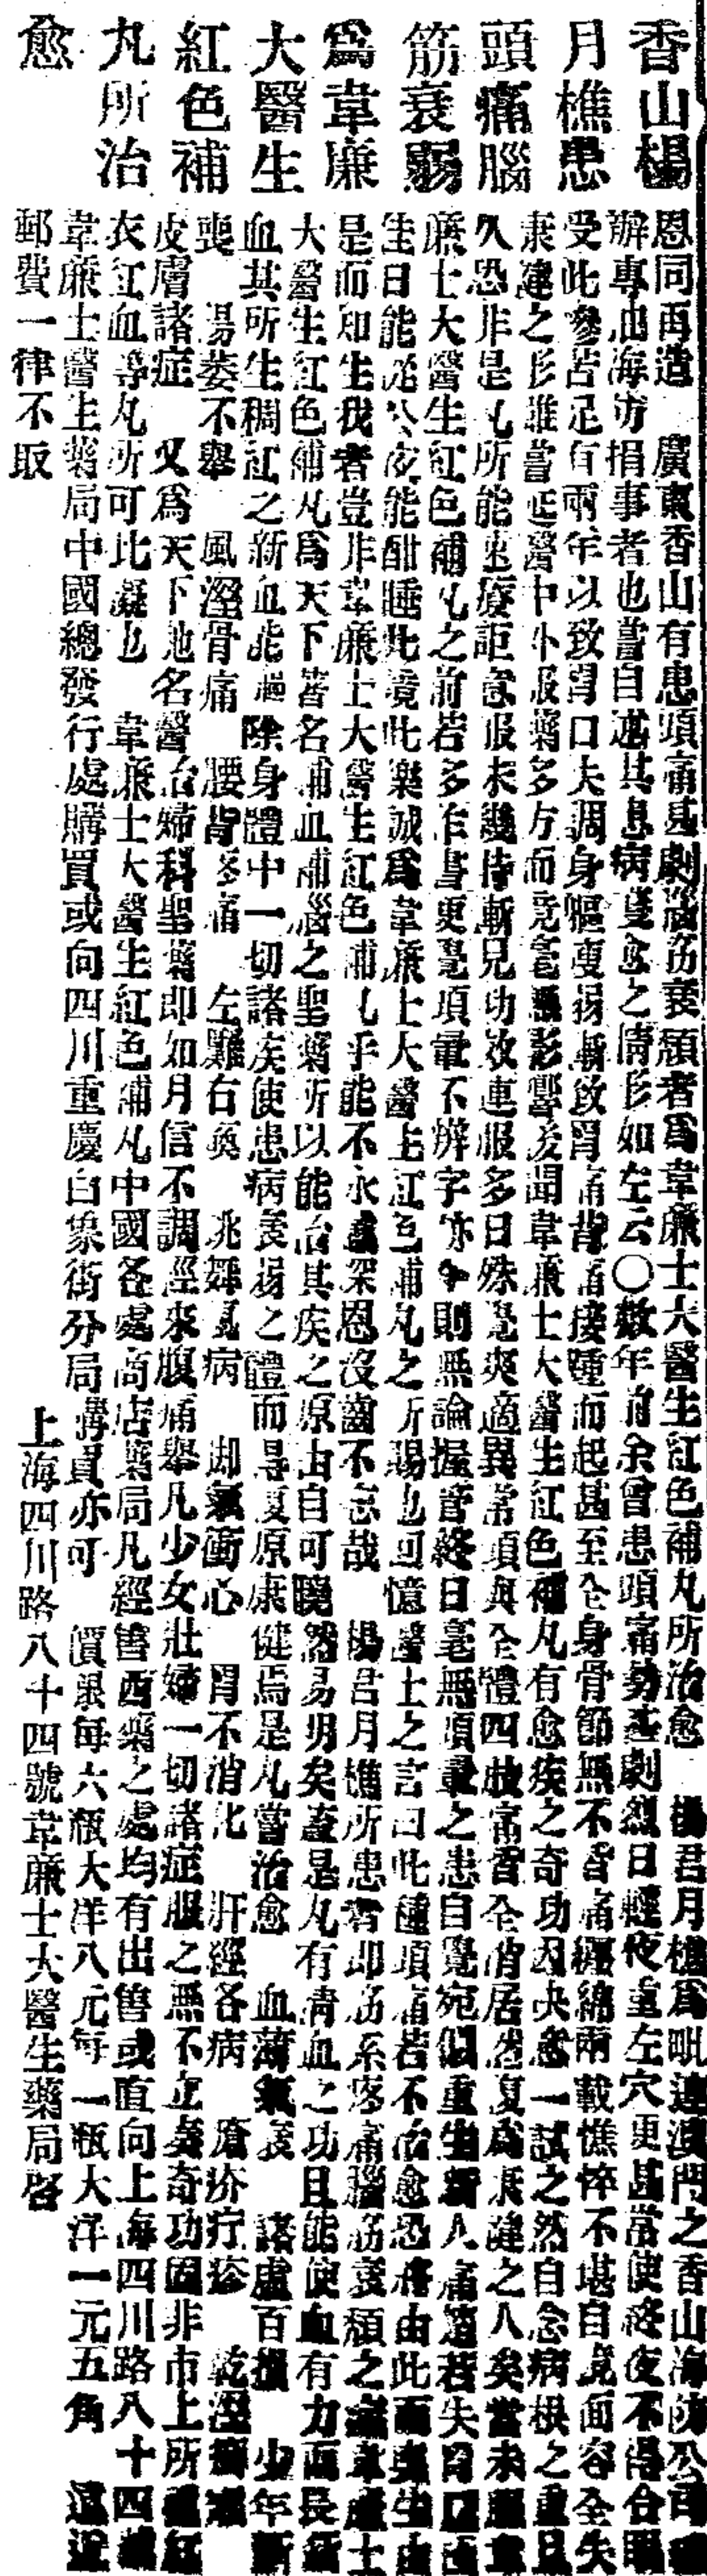 香山楊
月樵患
頭痛腦
筋衰弱
爲韋廉
大醫生
紅色補
丸所治
愈
恩同再造 廣東香山有患頭痛甚劇腦筋衰頹者爲韋廉士大醫生紅色補丸所治愈 楊君月樵爲毗連澳門之香山海防公
辦專理海防捐事者也嘗自述其患病獲愈之情形如左云〇數年前余曾患頭痛勢甚劇烈日輕夜重左穴更甚常使終夜不得合眼
受此慘苦足有兩年以致胃口失調身軀瘦弱漸致胃痛背痛接踵而起甚至全身骨節無不皆痛纏綿兩載憔悴不堪自覺面容全失
康建之形雖嘗延醫中外服藥多方而竟毫無影響後聞韋廉士大醫生紅色補丸有愈疾之奇功因决意一試之然自念病根之重且
久恐非是丸所能速療詎意服未幾時漸見功效連服多日殊覺爽適異常頭與全體四肢痛皆全消居然复爲康建之人矣當未服韋
廉士大醫生紅色補丸之前若多作書更覺頭暈不辨字跡今則無論握管終日毫無頭暈之患自覺宛似重生新人痛楚若失胃口
生日能從公夜能酣睡此境此樂誠爲韋廉士大醫生紅色補丸之所賜也回憶醫士之言曰此種頭痛若不治愈恐將由此而
是而知生我者豈非韋廉士大醫生紅色補丸乎能不永感深恩沒齒不忘哉 楊君月樵所患者即筋系疼痛腦筋衰頹之症韋廉士
大醫生紅色補丸爲天下著名補血補腦之聖藥所以能治其疾之原由自可曉然易明矣蓋是丸有清血之功且能使血有力而長
血其所生稠紅之新血能 除身體中一切諸疾使患病衰弱之體而得复原康健焉是丸嘗治愈 血薄氣衰 諸虛百損 少年斷
喪 陽萎不舉 風溼骨痛 腰背疼痛 左癱右瘓 跳舞瘋病 却氣衝心 胃不消化 肝經各病 瘡疥疔疹 乾溼癬
皮膚諸症 又爲天下馳名醫治婦科聖藥即如月信不調經來腹痛舉凡少女壯婦一切諸症服之無不立奏奇功固非市上所
衣紅血等丸所可比擬也 韋廉士大醫生紅色補丸中國各處商店藥局凡經售西藥之處均有出售或直向上海四川路八十四號
韋廉士醫生藥局中國總發行處購買或向四川重慶白象街分局購買亦可 價銀每六瓶大洋八元每一瓶大洋一元五角 遠近
郵費一律不取
上海四川路八十四號韋廉士大醫生藥局啓